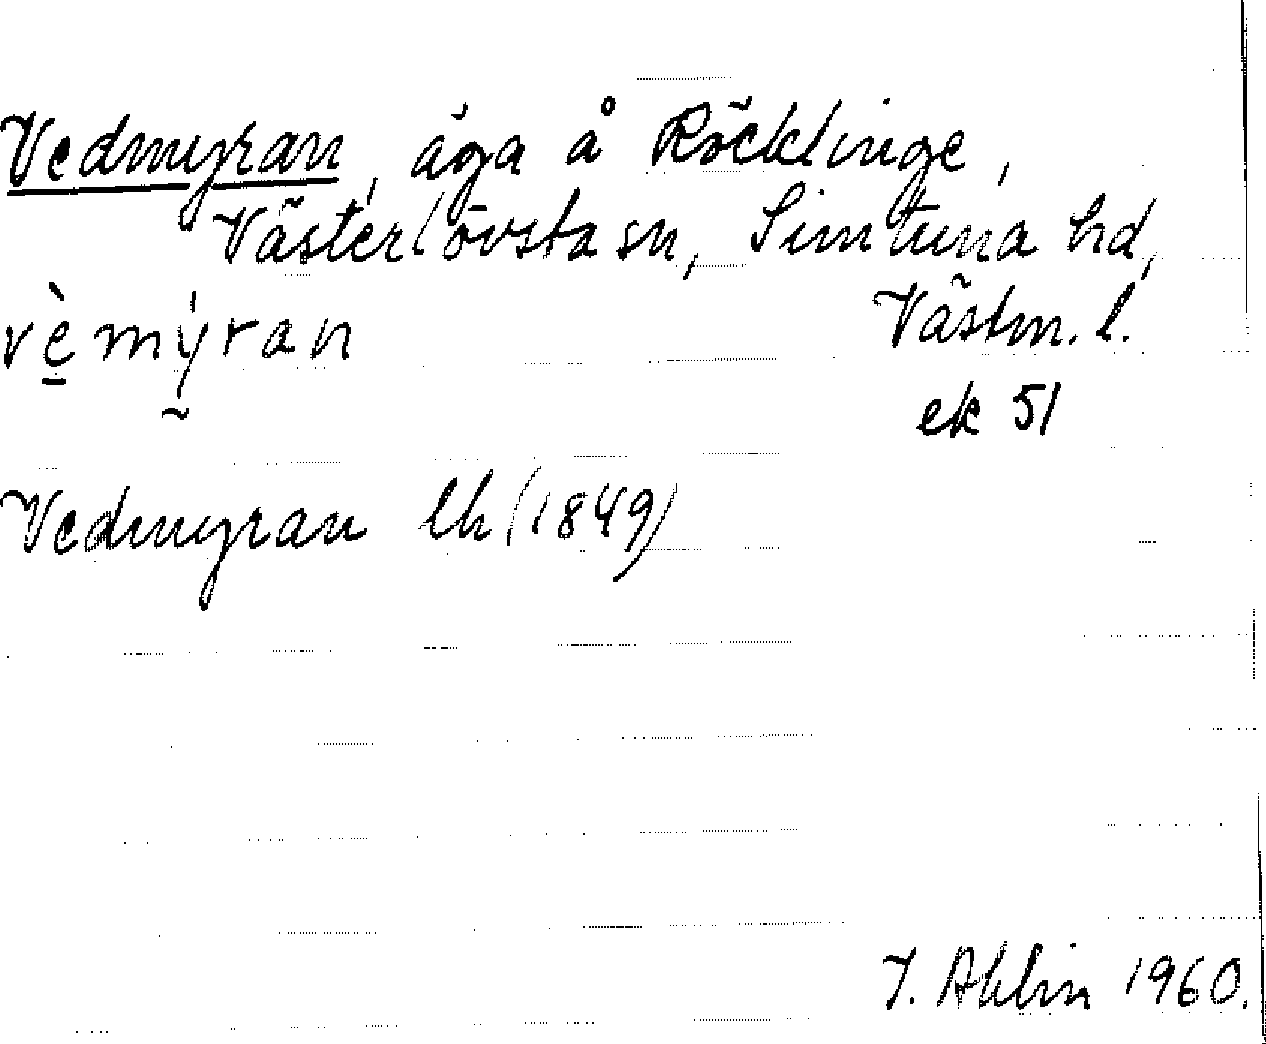 Vedmyran, äga å Röcklinge,
Västerlövsta sn, Simtuna hd,
vèmýran Västm. l.
ek 51
Vedmyran lh (1849)
I. Ahlin 1960.